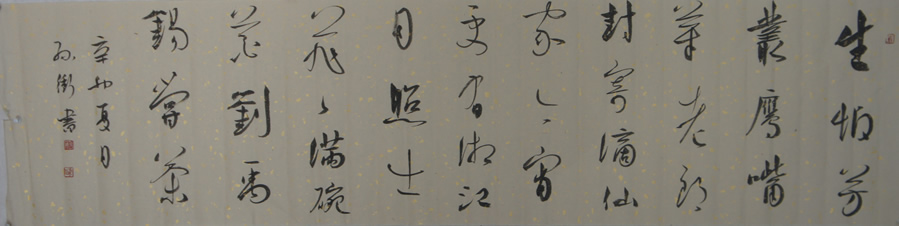 生拍芳
叢鷹嘴
芽老郎
封寄谪仙
家今宵
更有湘江
月照出
菲〻滿碗
花劉禹
錫嘗茶
辛卯夏月
孙書